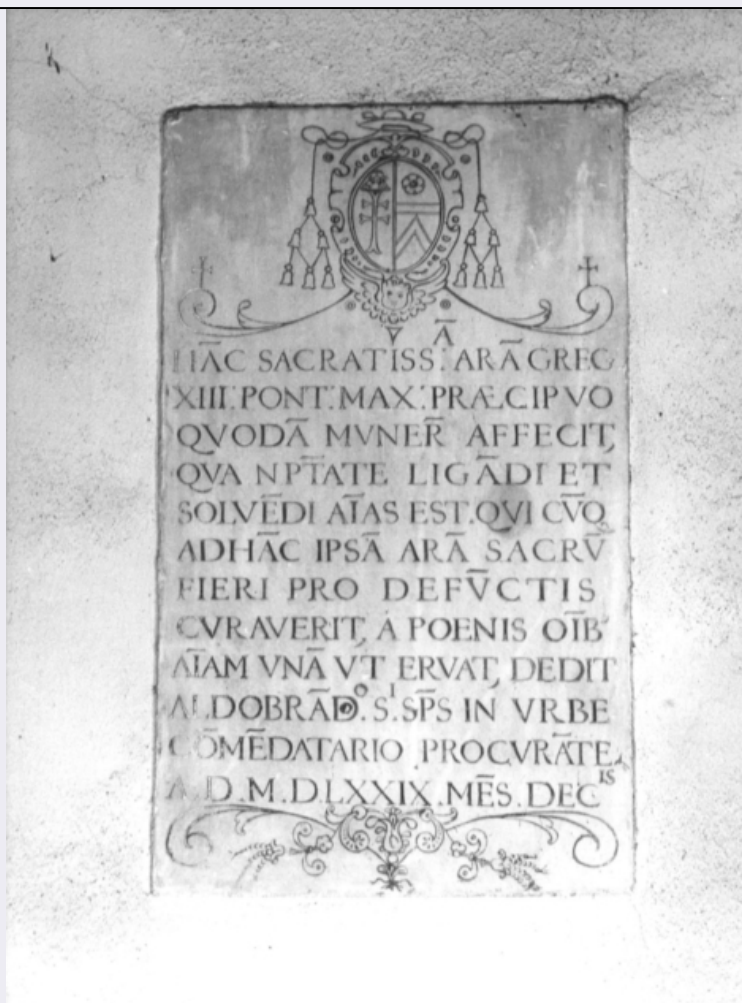 HĀC SACRATISS.Ā ARĀ GREG
XIII. PONT. MAX. PRÆCIPVO
QVODĀ MVNER̄ AFFECIT,
QVA NPT̄ATE LIGĀDI ET
SOLVĒDI AĪAS EST. QVI CV̄Q
ADHĀC IPSĀ ARĀ SACRV̄
FIERI PRO DEFV̄CTIS
CVRAVERIT, A POENIS OĪB'
AĪAM VNĀ VT ERVAT, DEDIT
ALDOBRĀD.O S.I SP̄S IN VRBE
CŌMĒDATARIO PROCVRĀTE.
A. D. M. D. LXXIX. MĒS. DEC.IS